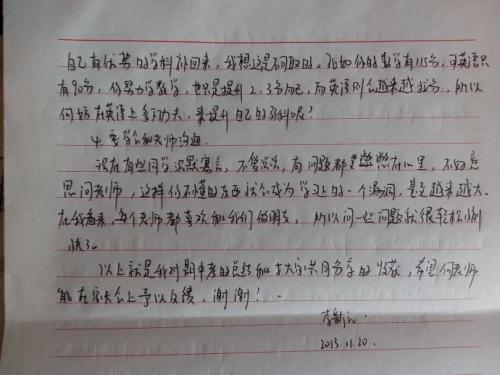 自己有优势的学科补回来,我想这是不可取的。比如你的数学有115分,可英语只
有90分,你努力学数学,也只是提升2、3分而已,而英语则会越来越拉分,所以
何妨在英语上多下功夫,来提升自己的弱科呢?
4、要学会和老师沟通。
现在有些同学沉默寡言,不爱说话,有问题都憋在心里,不好意
思问老师,这样你不懂的东西就会成为学习上的一个漏洞,甚至越来越大。
在我看来,每个老师都喜欢和我们做朋友,所以问一些问题就很轻松愉
快了。
以上就是我对期中考的总结和与大家共同分享的收获,希望何老师
能在家长会上予以反馈,谢谢!
李新
2013.11.20.